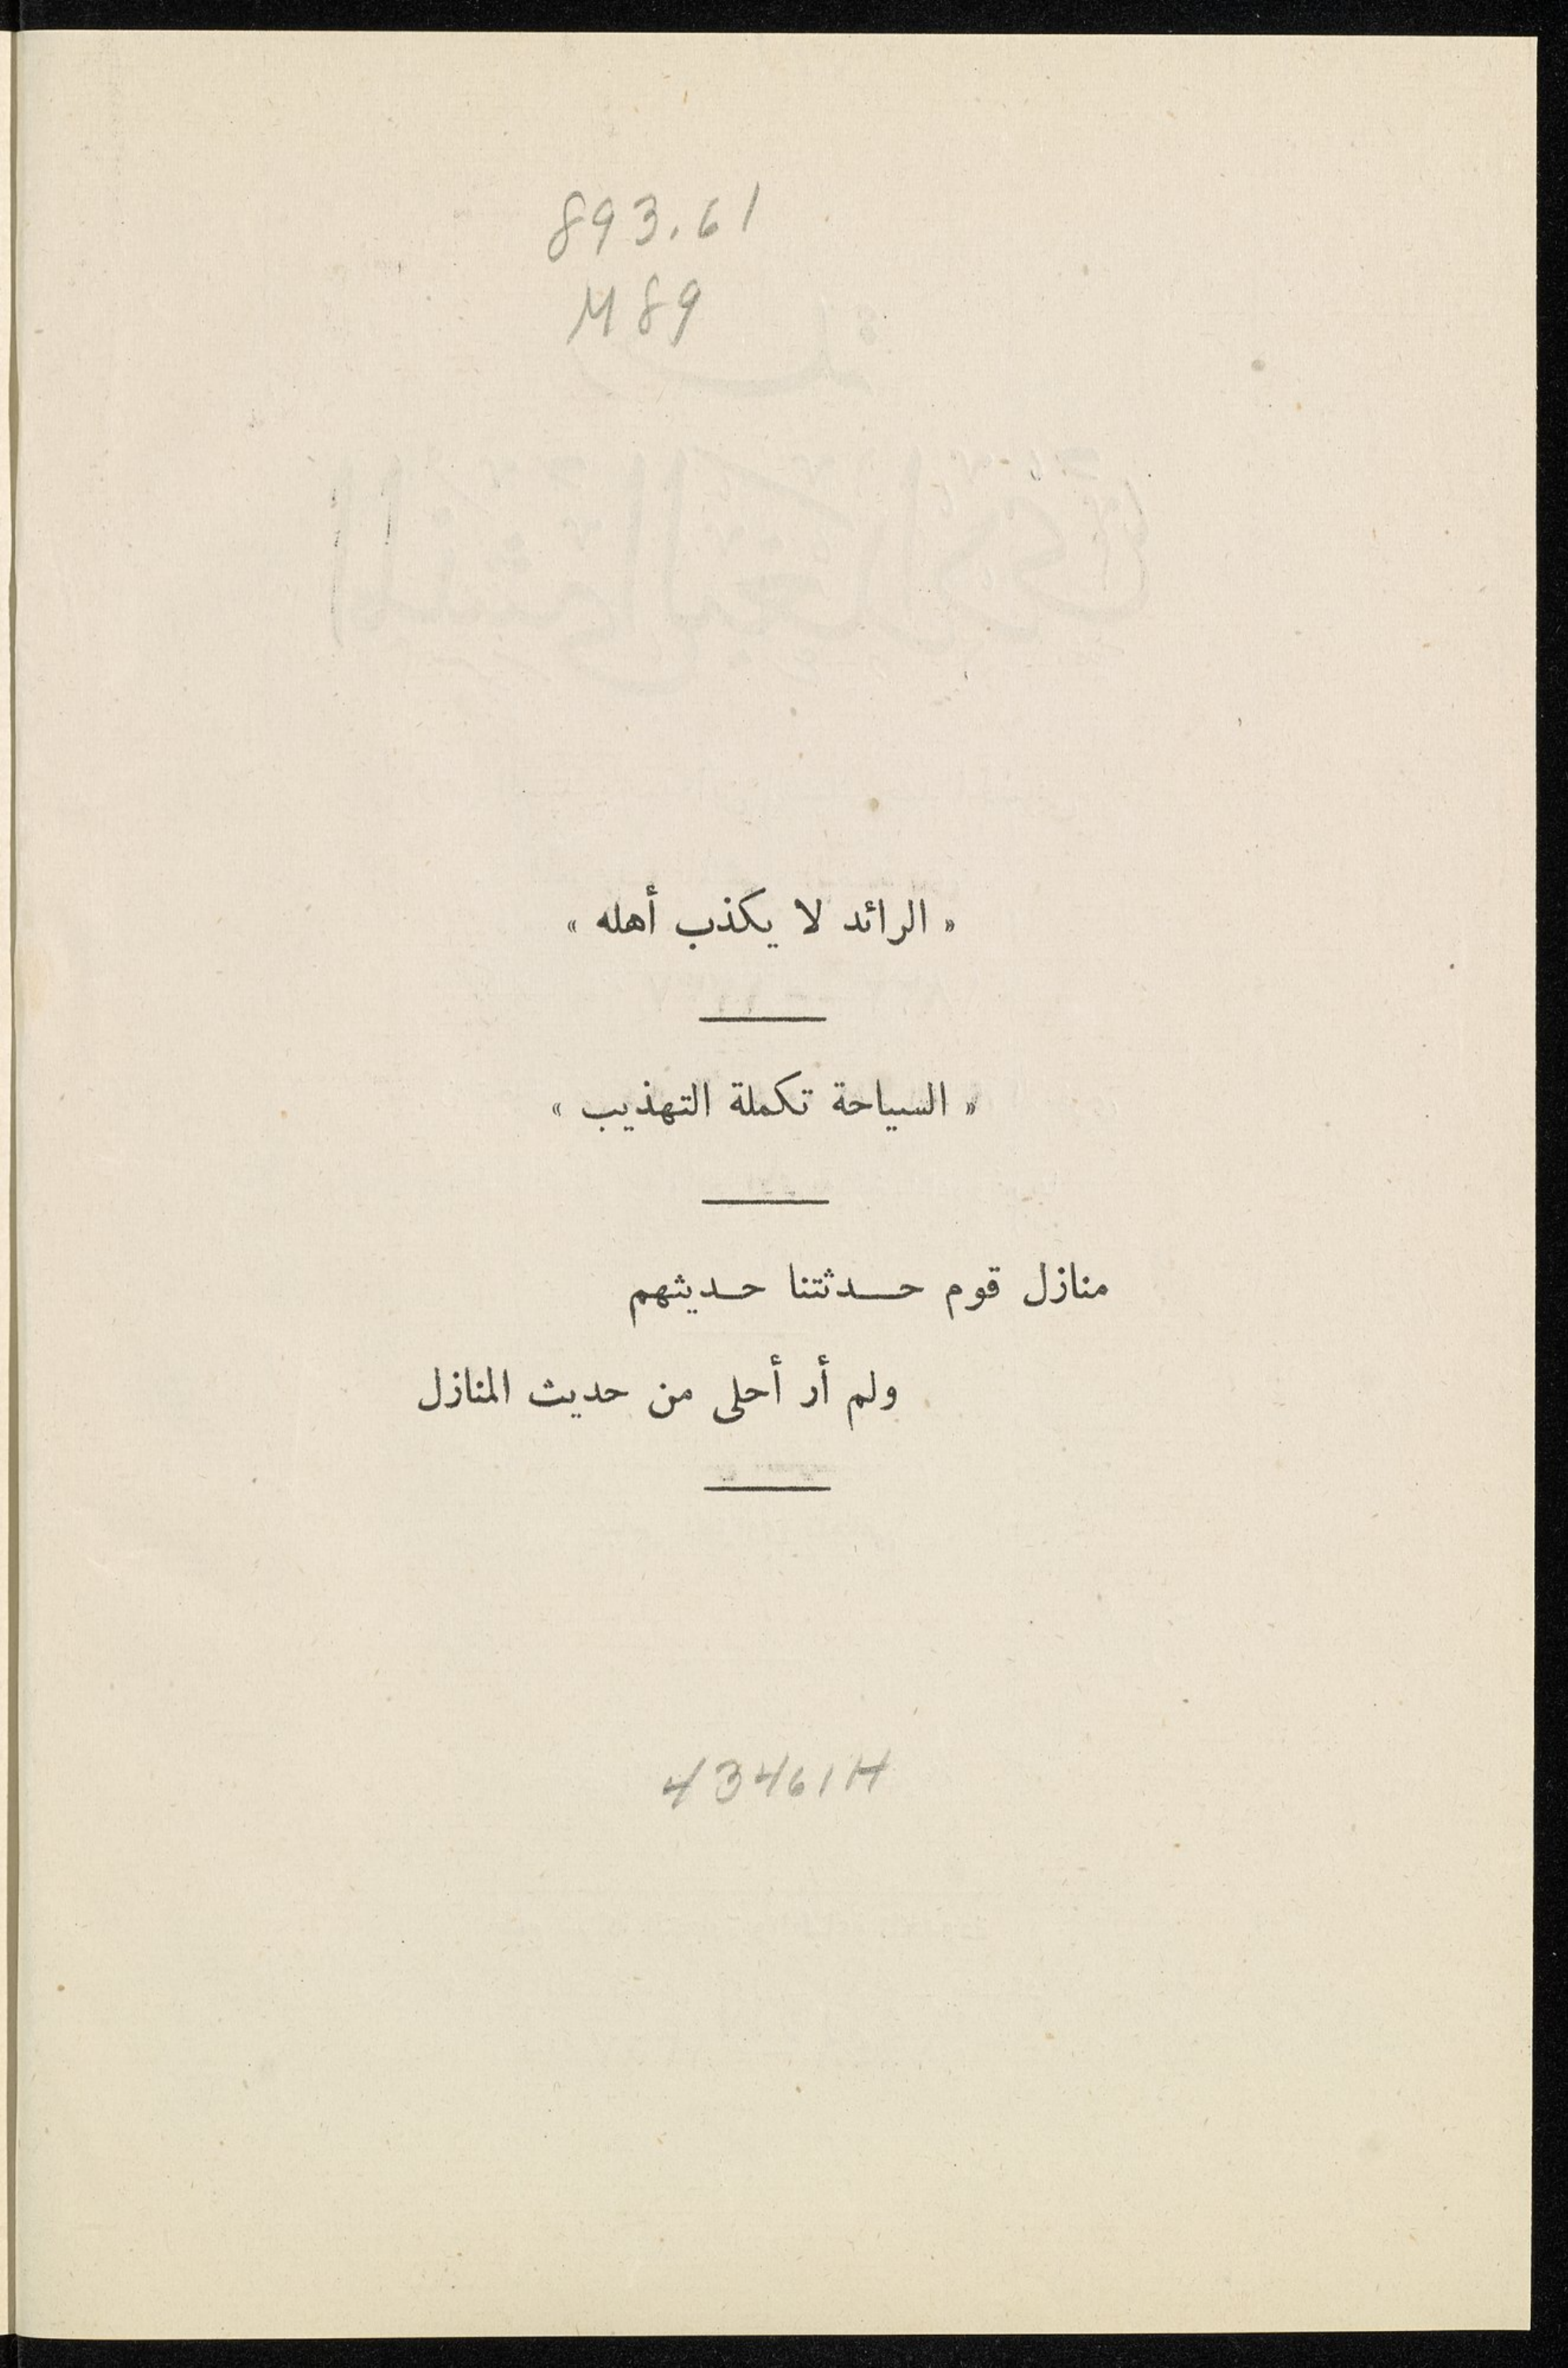 893.61
M89
« الرائد لا يكذب أهله »
« السياحة تكملة التهذيب »
منازل قوم حدثتنا حديثهم
ولم أر أحلى من حديث المنازل
43461H